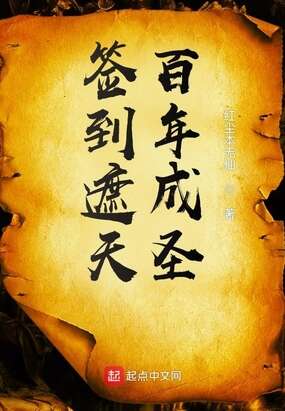 百年成圣
签到遮天
红尘本无仙 著
起 起点中文网